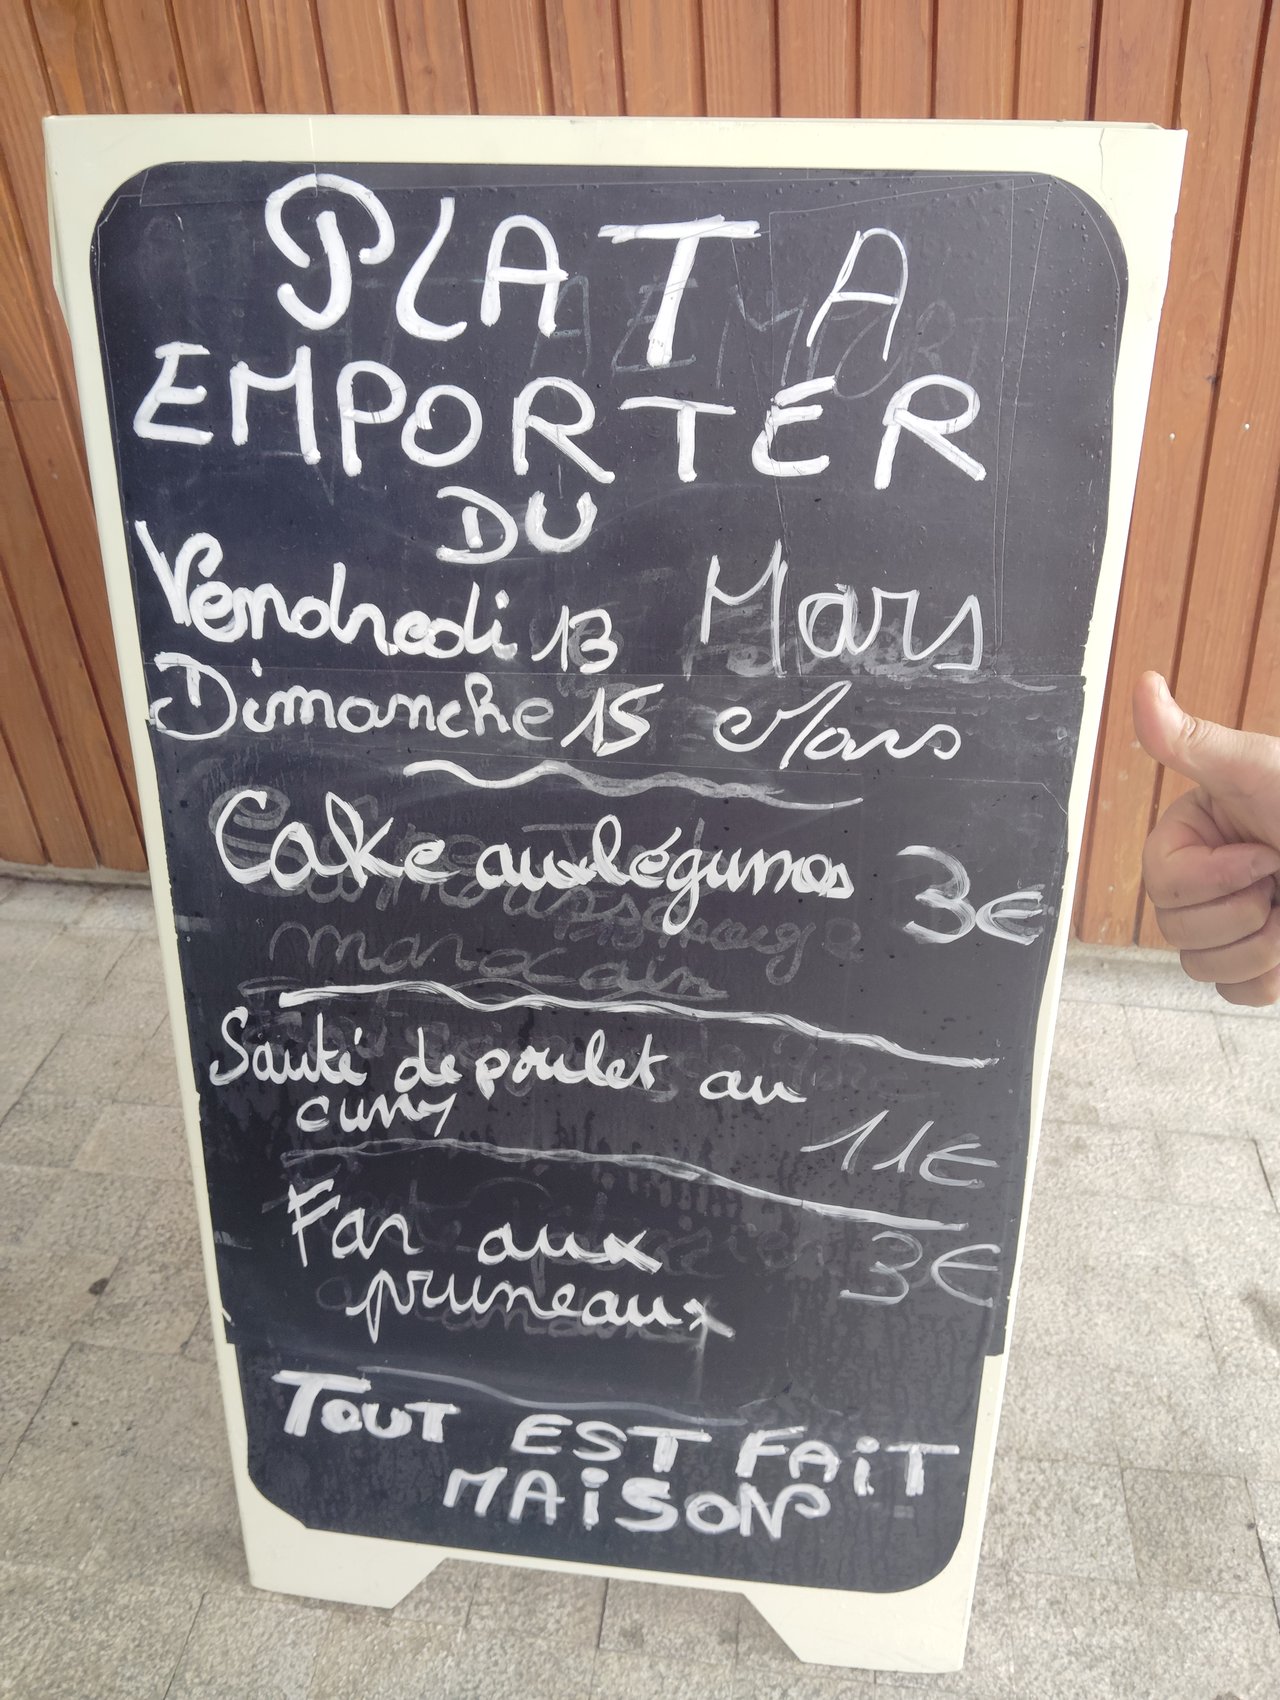 PLAT A
EMPORTER
DU
Vendredi 13 Mars
Dimanche 15 Mars
Cake aux légumes 3€
marocain
Sauté de poulet au
curry 11€
Far aux 3€
pruneaux
TOUT EST FAiT
MAiSON